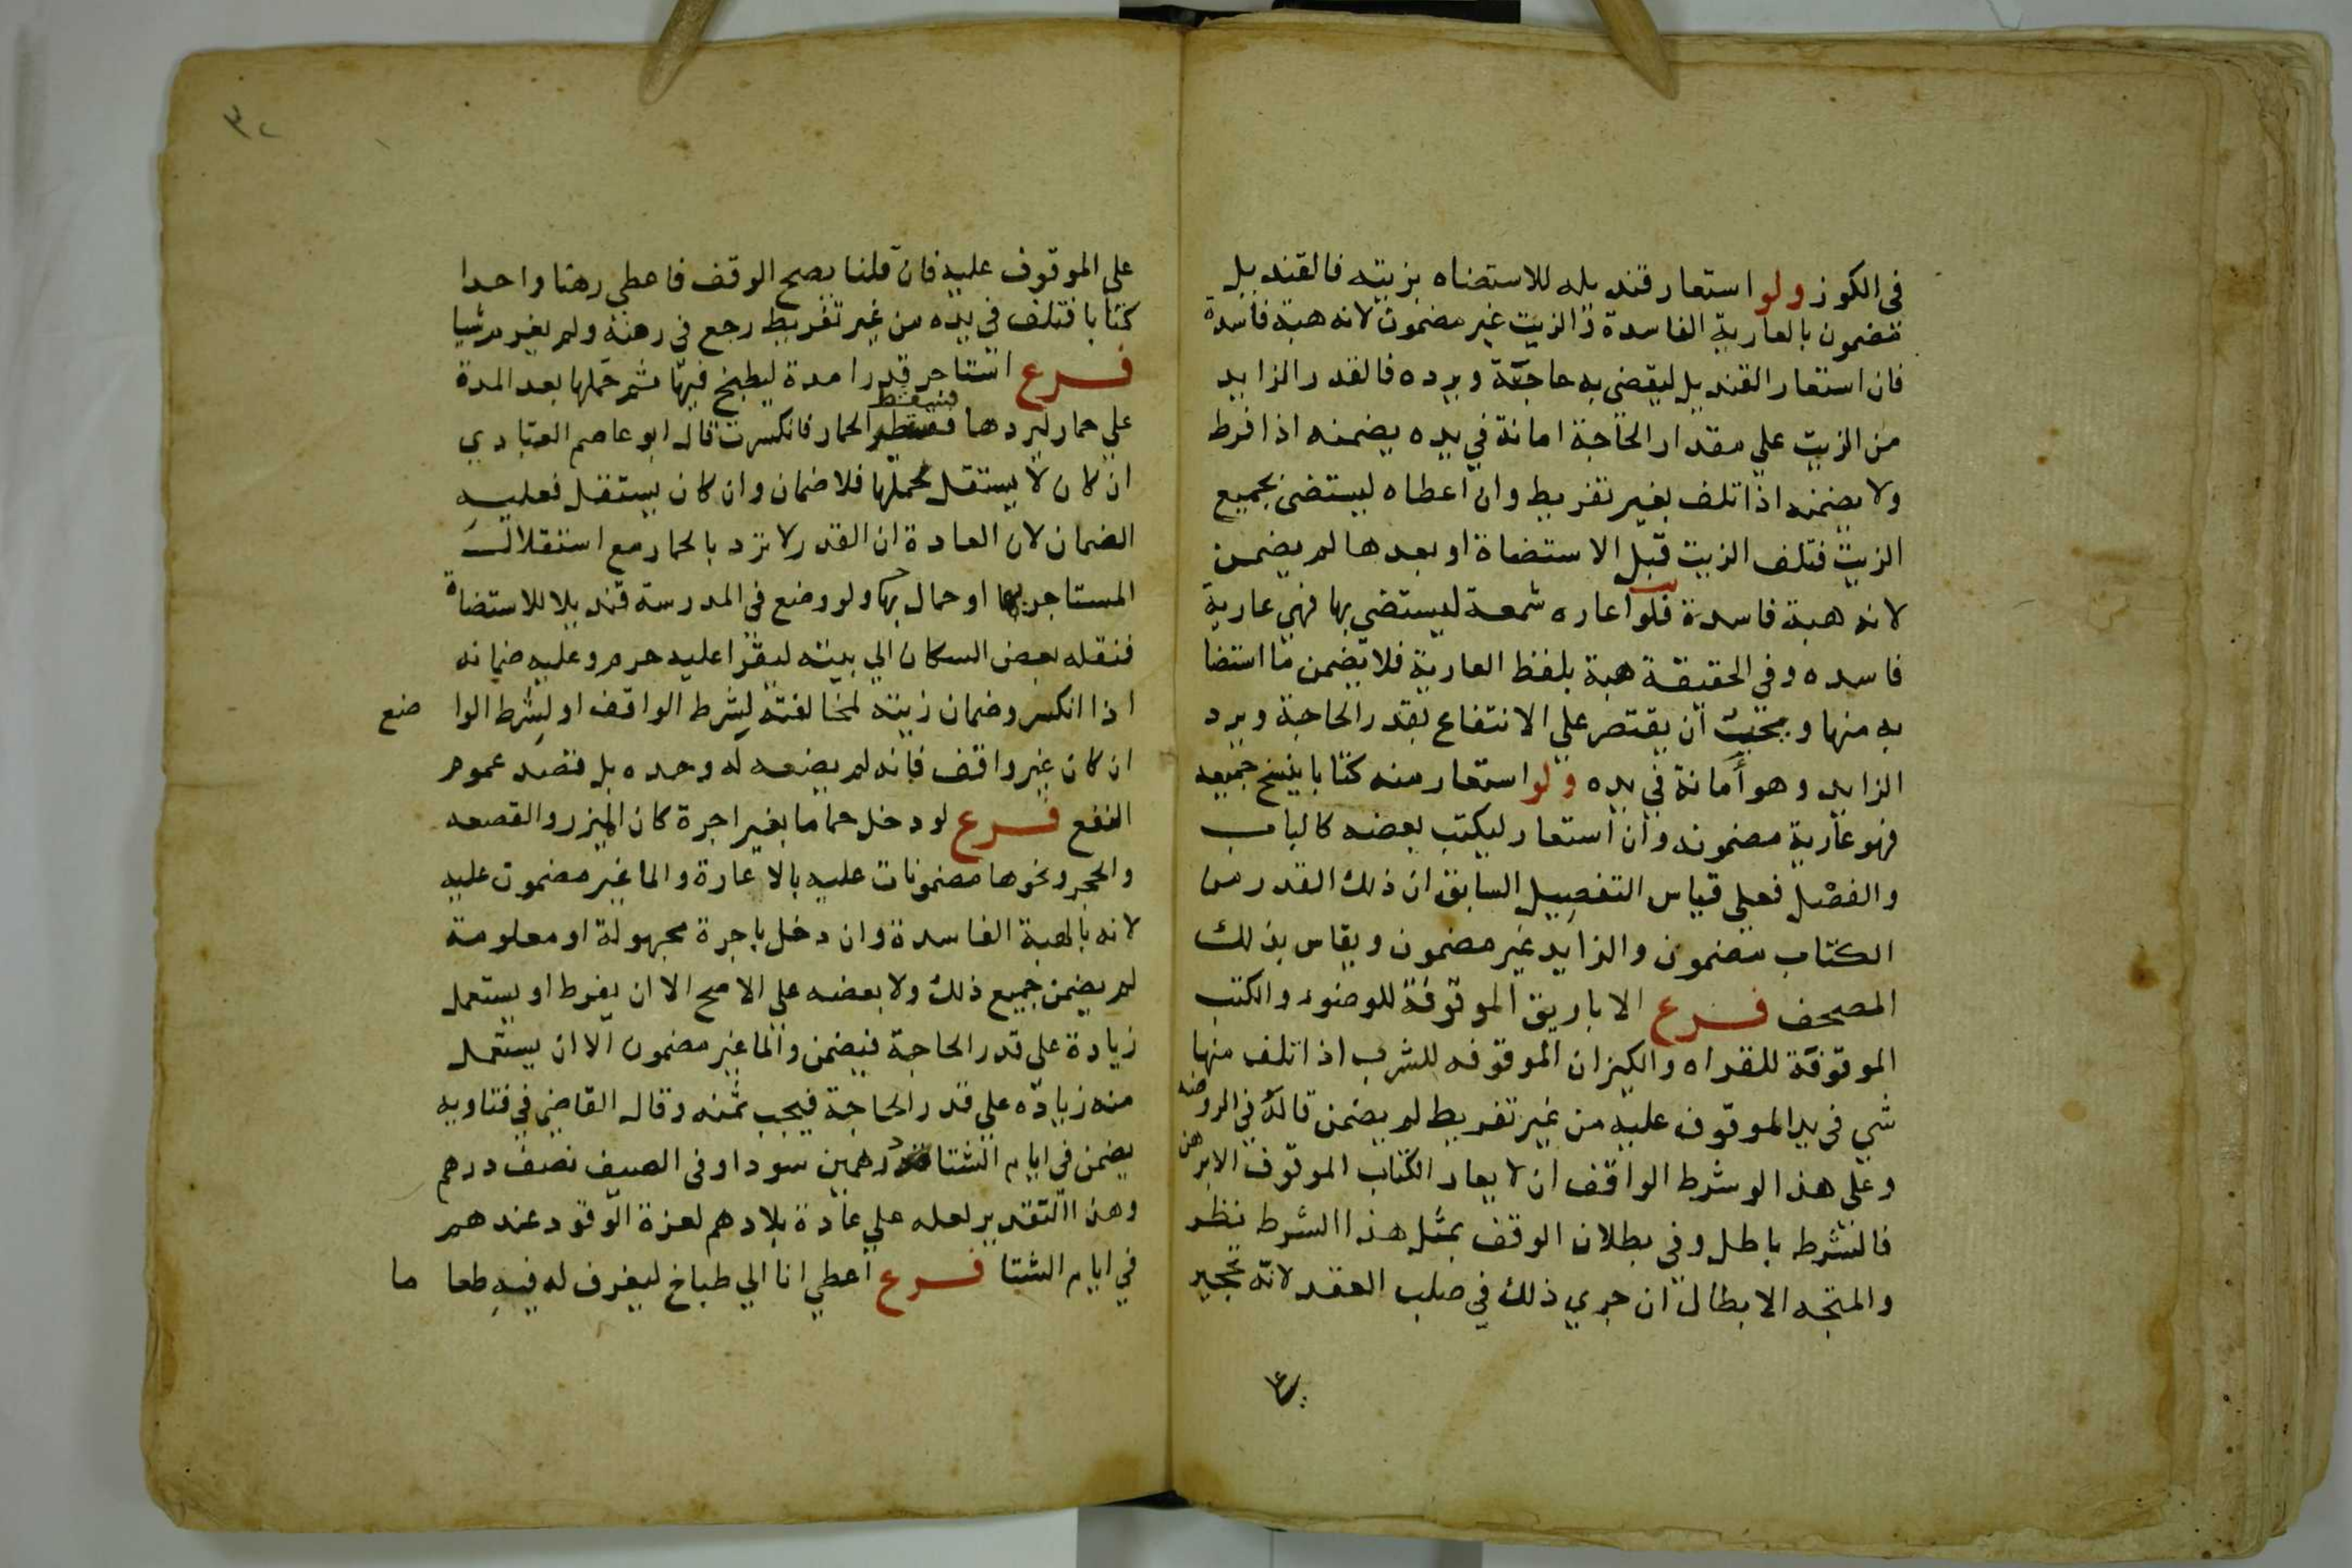 في الكوز ولو استعار قنديله للاستضاه بزيته فالقنديل
مضمون بالعارية الفاسدة والزيت غير مضمون لانه هبة فاسدة
فان استعار القنديل ليقضي به حاجته ويرده فالقدر الزايد
من الزيت علي مقدار الحاجة امانة في يده يضمنه اذا فرط
ولا يضمنه اذا تلف بغير تفريط وان اعطاه ليستضئ بجميع
الزيت فتلف الزيت قبل الاستضاة او بعدها لم يضمن
لانه هبة فاسدة فلو اعاره شمعة ليستضي بها فهي عارية
فاسده وفي الحقيقة هبة بلفظ العارية فلا يضمن ما استضا
به منها ويجب ان يقتصر علي الانتفاع بقدر الحاجة ويرد
الزايد وهو أمانة في يده ولو استعار منه كتابا ينسخ جميعه
فهو عارية مضمونه وان استعار ليكتب بعضه كالباب
والفصل فعلي قياس التفصيل السابق ان ذلك القدر من
الكتاب مضمون والزايد غير مضمون ويقاس بذلك
المصحف فرع الاباريق الموقوفة للوضوء والكتب
الموقوفة للقراه والكيزان الموقوفه للشرب اذا تلف منها
شي في يد الموقوف عليه من غير تفريط لم يضمن قاله في الروضه
وعلي هذا لو شرط الواقف ان لا يعار الكتاب الموقوف الا برهن
فالشرط باطل وفي بطلان الوقف بمثل هذا الشرط نظر
والمتجه الابطال ان جري ذلك في صلب العقد لانه تحجير
٣٢
علي الموقوف عليه فان قلنا يصح الوقف فاعطي رهنا واحدا
كتابا فتلف في يده من غير تفريط رجع في رهنه ولم يغرم شيا
فرع استاجر قدرا مدة ليطبخ فيها ثم حملها بعد المدة
علي حمار ليردها فسقط الحمار فانكسرت قال ابو عاصم العبادي
ان كان لا يستقل بحملها فلا ضمان وان كان يستقل فعليه
الضمان لان العادة ان القدر لا ترد بالحمار مع استقلال
المستاجر بها او حمال بها ولو وضع في المدرسة قنديلا للاستضاة
فنقله بعض السكان الي بيته ليقرا عليه حرم وعليه ضمانه
اذا انكسر وضمان زيته لمخالفته لشرط الواقف او لشرط الواضع
ان كان غير واقف فانه لم يضعه له وحده بل قصد عموم
النفع فرع لو دخل حماما بغير اجرة كان الميزر والقصعه
والحجر ونحوها مضمونات عليه بالاعارة والما غير مضمون عليه
لانه بالهبة الفاسدة وان دخل باجرة مجهولة او معلومة
لم يضمن جميع ذلك ولا بعضه علي الاصح الا ان يفرط او يستعمل
زيادة علي قدر الحاجة فيضمن والما غير مضمون الا ان يستعمل
منه زياده علي قدر الحاجة فيجب ثمنه وقال القاضي في فتاويه
يضمن في ايام الشتا درهمين سودا وفي الصيف نصف درهم
وهذا التقدير لعله علي عادة بلادهم لعزة الوقود عندهم
في ايام الشتا فرع اعطي انا الي طباخ ليغرف له فيه طعاما